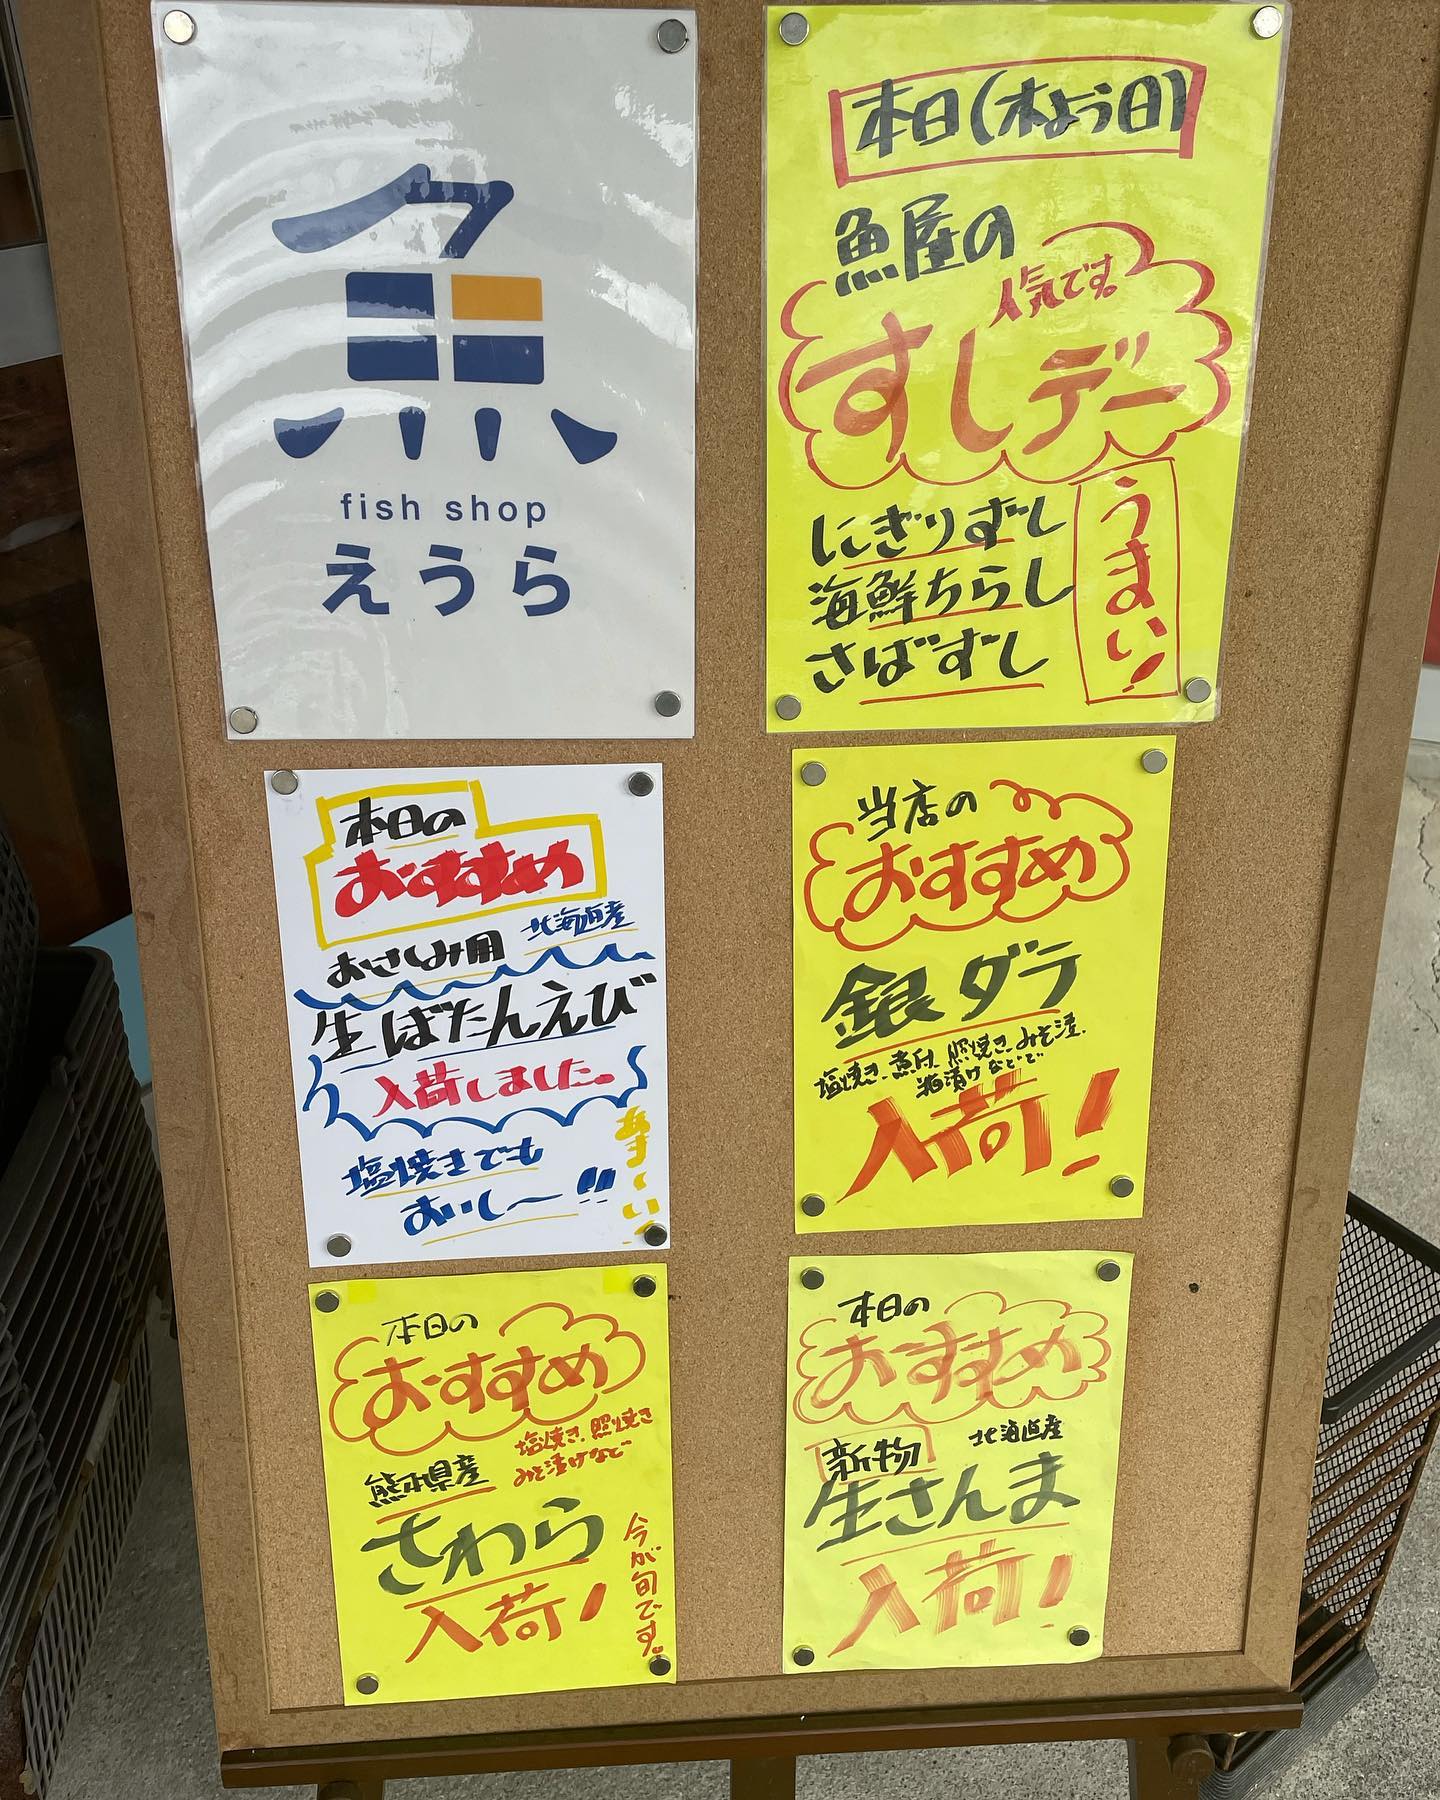 魚
fish shop
えうら
本日(木よう日)
魚屋の
人気です。
すしデー
にぎりずし
海鮮ちらし
さばずし
うまい!
本日の
おすすめ
北海道産
おさしみ用
生ぼたんえび
入荷しました。
塩焼きでも
おいし〜!!
あまーい
当店の
おすすめ
銀ダラ
塩焼き、煮付、照焼き、みそ漬、
粕漬けなどで
入荷!
本日の
おすすめ
塩焼き、照焼き
みそ漬けなど
熊本県産
さわら
入荷!
今が旬です。
本日の
おすすめ
北海道産
新物
生さんま
入荷!